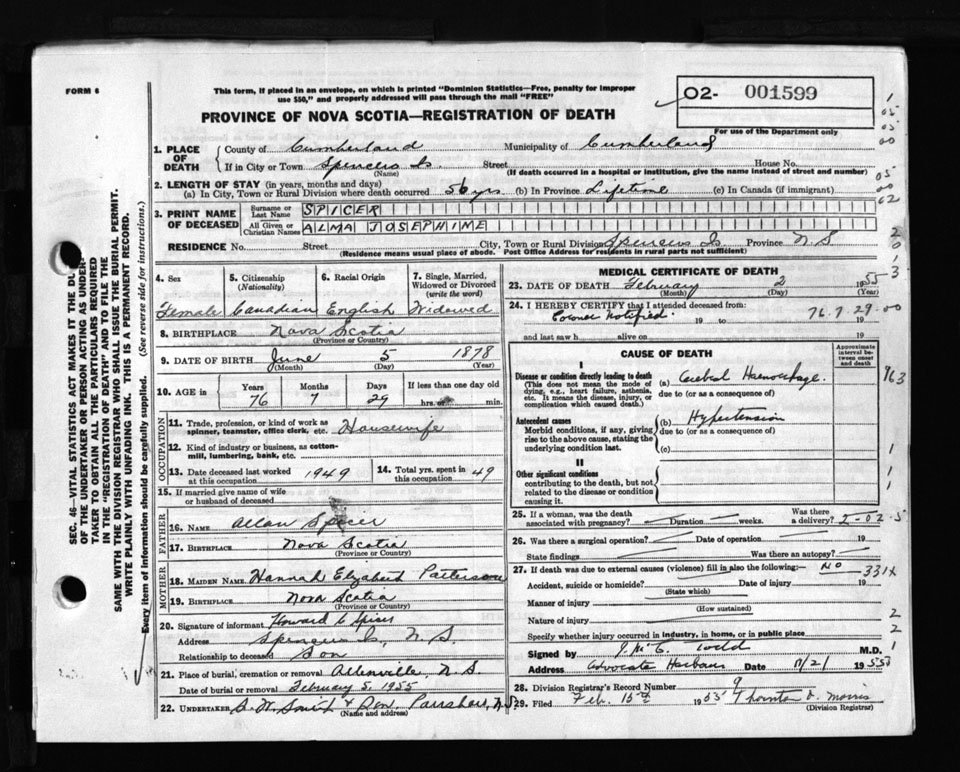 FORM 6
This form, if placed in an envelope, on which is printed "Dominion Statistics—Free, penalty for improper
use $50," and properly addressed will pass through the mail "FREE"
PROVINCE OF NOVA SCOTIA—REGISTRATION OF DEATH
O2- 001599
For use of the Department only
1. PLACE OF DEATH
County of Cumberland Municipality of Cumberland
If in City or Town Spencers Is. Street House No.
(Name) (If death occurred in a hospital or institution, give the name instead of street and number)
2. LENGTH OF STAY (in years, months and days)
(a) In City, Town or Rural Division where death occurred 56 yrs. (b) In Province Lifetime (c) In Canada (if immigrant)
3. PRINT NAME OF DECEASED
Surname or Last Name SPICER
All Given or Christian Names ALMA JOSEPHINE
RESIDENCE No. Street City, Town or Rural Division Spencers Is. Province N S
(Residence means usual place of abode. Post Office Address for residents in rural parts not sufficient)
4. Sex 5. Citizenship (Nationality) 6. Racial Origin 7. Single, Married, Widowed or Divorced (write the word)
Female Canadian English Widowed
8. BIRTHPLACE Nova Scotia
(Province or Country)
9. DATE OF BIRTH June 5 1878
(Month) (Day) (Year)
10. AGE in Years Months Days If less than one day old
76 7 29 hrs. or min.
OCCUPATION
11. Trade, profession, or kind of work as spinner, teamster, office clerk, etc. Housewife
12. Kind of industry or business, as cotton-mill, lumbering, bank, etc.
13. Date deceased last worked at this occupation 1949 14. Total yrs. spent in this occupation 49
15. If married give name of wife or husband of deceased
FATHER
16. NAME Allan Spicer
17. BIRTHPLACE Nova Scotia
(Province or Country)
MOTHER
18. MAIDEN NAME Hannah Elizabeth Patterson
19. BIRTHPLACE Nova Scotia
(Province or Country)
20. Signature of informant Howard C Spicer
Address Spencers Is, N. S.
Relationship to deceased Son
21. Place of burial, cremation or removal N. S.
Date of burial or removal February 5, 1955
22. UNDERTAKER & Son, Parrsboro, N.S.
(Name and address)
MEDICAL CERTIFICATE OF DEATH
23. DATE OF DEATH February 2 1955
(Month) (Day) (Year)
24. I HEREBY CERTIFY that I attended deceased from:
Coroner Notified. 19 to 19
76.7.29.00
and last saw h alive on 19
CAUSE OF DEATH
Approximate interval between onset and death
I
Disease or condition directly leading to death
(This does not mean the mode of dying, e.g., heart failure, asthenia, etc. It means the disease, injury, or complication which caused death.)
(a) Cerebral Haemorrhage.
due to (or as a consequence of)
Antecedent causes
Morbid conditions, if any, giving rise to the above cause, stating the underlying condition last.
(b) Hypertension
due to (or as a consequence of)
(c)
II
Other significant conditions
contributing to the death, but not related to the disease or condition causing it.
25. If a woman, was the death associated with pregnancy? Duration weeks. Was there a delivery?
26. Was there a surgical operation? Date of operation 19
State findings Was there an autopsy?
27. If death was due to external causes (violence) fill in also the following:— No
331X
Accident, suicide or homicide? Date of injury 19
(State which)
Manner of injury
(How sustained)
Nature of injury
Specify whether injury occurred in industry, in home, or in public place
Signed by M.D.
Address Advocate Harbour Date 19 55
28. Division Registrar's Record Number 9
29. Filed Feb. 15th 1955 Thornton D. Morris
(Division Registrar)
SEC. 46—VITAL STATISTICS ACT MAKES IT THE DUTY
OF THE UNDERTAKER OR PERSON ACTING AS UNDERTAKER
TO OBTAIN ALL THE PARTICULARS REQUIRED
IN THE "REGISTRATION OF DEATH" AND TO FILE THE
SAME WITH THE DIVISION REGISTRAR WHO SHALL ISSUE THE BURIAL PERMIT.
WRITE PLAINLY WITH UNFADING INK. THIS IS A PERMANENT RECORD.
Every item of information should be carefully supplied. (See reverse side for instructions.)